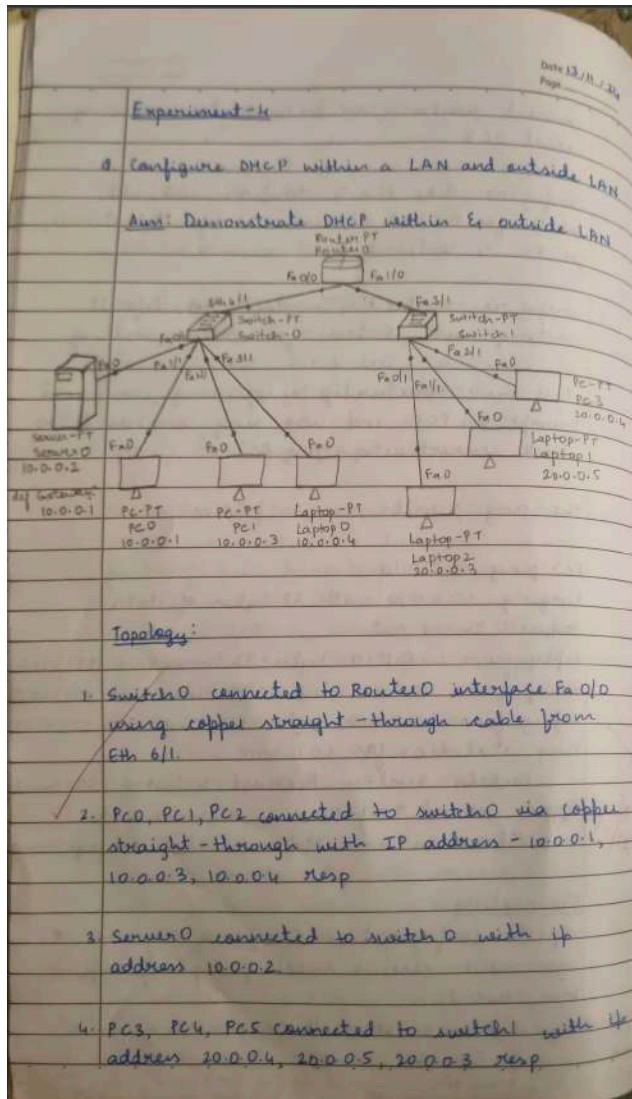 Date 13/11/24
Page
Experiment-4
Q Configure DHCP within a LAN and outside LAN
Aim: Demonstrate DHCP within & outside LAN
Router-PT
Router0
Fa0/0 Fa1/0
Eth 6/1 Fa3/1
Switch-PT
Switch-0
Switch-PT
Switch1
Fa0/1 Fa1/1 Fa2/1 Fa3/1
Fa0/1 Fa1/1 Fa2/1
Fa0
Fa0
PC-PT
PC3
20.0.0.4
Fa0
Laptop-PT
Laptop1
20.0.0.5
Server-PT
Server0
10.0.0.2
def Gateway:
10.0.0.1
Fa0 Fa0 Fa0 Fa0
PC-PT
PC0
10.0.0.1
PC-PT
PC1
10.0.0.3
Laptop-PT
Laptop0
10.0.0.4
Laptop-PT
Laptop2
20.0.0.3
Topology:
1. Switch0 connected to Router0 interface Fa0/0
using copper straight-through cable from
Eth 6/1.
2. PC0, PC1, PC2 connected to switch0 via copper
straight-through with IP address - 10.0.0.1,
10.0.0.3, 10.0.0.4 resp
3. Server0 connected to switch0 with ip
address 10.0.0.2
4. PC3, PC4, PC5 connected to switch1 with ip
address 20.0.0.4, 20.0.0.5, 20.0.0.3 resp